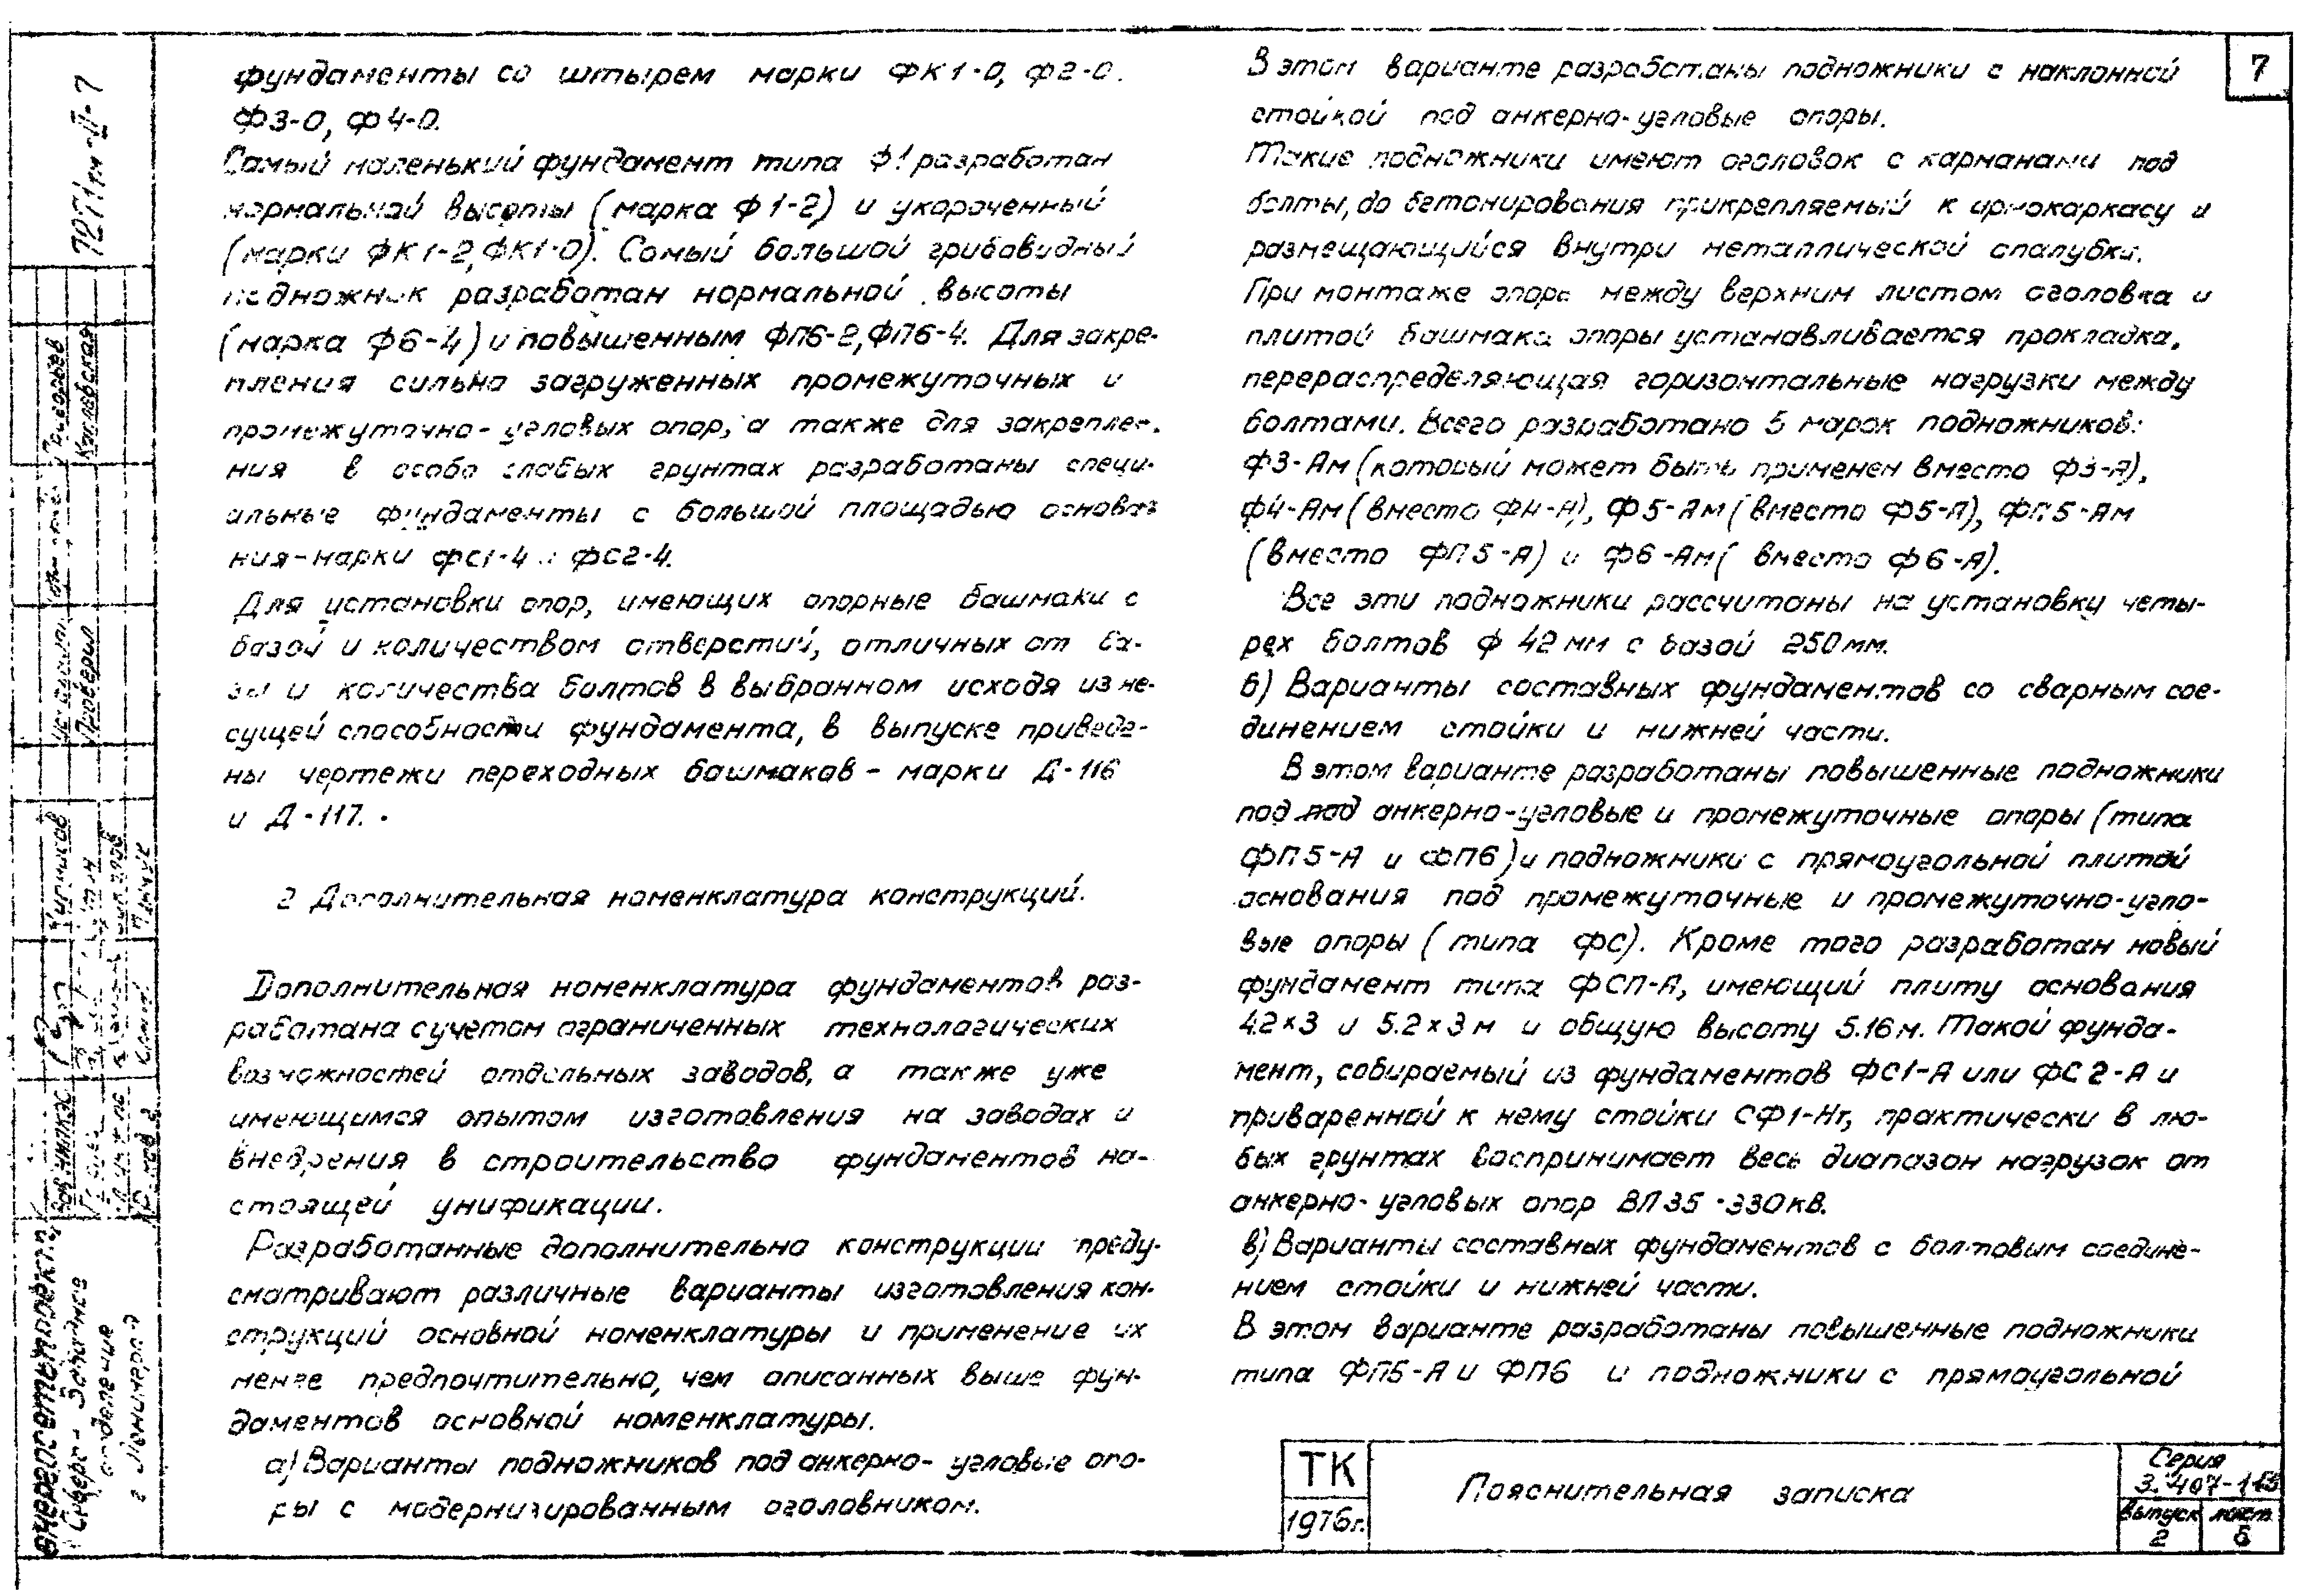 фундаменты со штырем марки ФК1-0, Ф2-0.
Ф3-0, Ф4-0.
Самый маленький фундамент типа Ф1 разработан
нормальной высоты (марка Ф1-2) и укороченный
(марки ФК1-2, ФК1-0). Самый большой грибовидный
подножник разработан нормальной высоты
(марка Ф6-4) и повышенным ФП6-2, ФП6-4. Для закре-
пления сильно загруженных промежуточных и
промежуточно-угловых опор, а также для закрепле-
ния в особо слабых грунтах разработаны специ-
альные фундаменты с большой площадью основа-
ния-марки ФС1-4 и ФС2-4.
Для установки опор, имеющих опорные башмаки с
базой и количеством отверстий, отличных от ба-
зы и количества болтов в выбранном исходя из не-
сущей способности фундамента, в выпуске приведе-
ны чертежи переходных башмаков - марки Д-116
и Д-117.
2 Дополнительная номенклатура конструкций.
Дополнительная номенклатура фундаментов раз-
работана с учетом ограниченных технологических
возможностей отдельных заводов, а также уже
имеющимся опытом изготовления на заводах и
внедрения в строительство фундаментов на-
стоящей унификации.
Разработанные дополнительно конструкции преду-
сматривают различные варианты изготовления кон-
струкций основной номенклатуры и применение их
менее предпочтительно, чем описанных выше фун-
даментов основной номенклатуры.
а) Варианты подножников под анкерно-угловые опо-
ры с модернизированным оголовником.
В этом варианте разработаны подножники с наклонной
стойкой под анкерно-угловые опоры.
Такие подножники имеют оголовок с карманами под
болты, до бетонирования прикрепляемый к армокаркасу и
размещающийся внутри металлической опалубки.
При монтаже опоры между верхним листом оголовка и
плитой башмака опоры устанавливается прокладка,
перераспределяющая горизонтальные нагрузки между
болтами. Всего разработано 5 марок подножников:
Ф3-Ам (который может быть применен вместо Ф3-А),
Ф4-Ам (вместо Ф4-А), Ф5-Ам (вместо Ф5-А), ФП5-Ам
(вместо ФП5-А) и Ф6-Ам (вместо Ф6-А).
Все эти подножники рассчитаны на установку четы-
рех болтов ф 42 мм с базой 250 мм.
б) Варианты составных фундаментов со сварным сое-
динением стойки и нижней части.
В этом варианте разработаны повышенные подножники
под под анкерно-угловые и промежуточные опоры (типа
ФП5-А и ФП6) и подножники с прямоугольной плитой
основания под промежуточные и промежуточно-угло-
вые опоры (типа ФС). Кроме того разработан новый
фундамент типа ФСП-А, имеющий плиту основания
4.2×3 и 5.2×3 м и общую высоту 5.16 м. Такой фунда-
мент, собираемый из фундаментов ФС1-А или ФС2-А и
приваренной к нему стойки СФ1-Нт, практически в лю-
бых грунтах воспринимает весь диапазон нагрузок от
анкерно-угловых опор ВЛ 35-330 кВ.
в) Варианты составных фундаментов с болтовым соедине-
нием стойки и нижней части.
В этом варианте разработаны повышенные подножники
типа ФП5-А и ФП6 и подножники с прямоугольной
7
7271тм-II-7
Григорьев
Каплевская
Проверил
Энергосетьпроект
Северо-Западное
отделение
г Ленинград
ТК
1976г.
Пояснительная записка
Серия
3.407-115
выпуск
2
лист
5